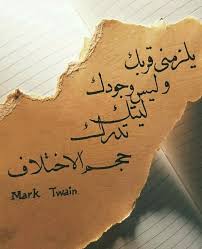 يلزمني قربك
و ليس وجودك
ليتك
تدرك
حجم الاختلاف
Mark Twain